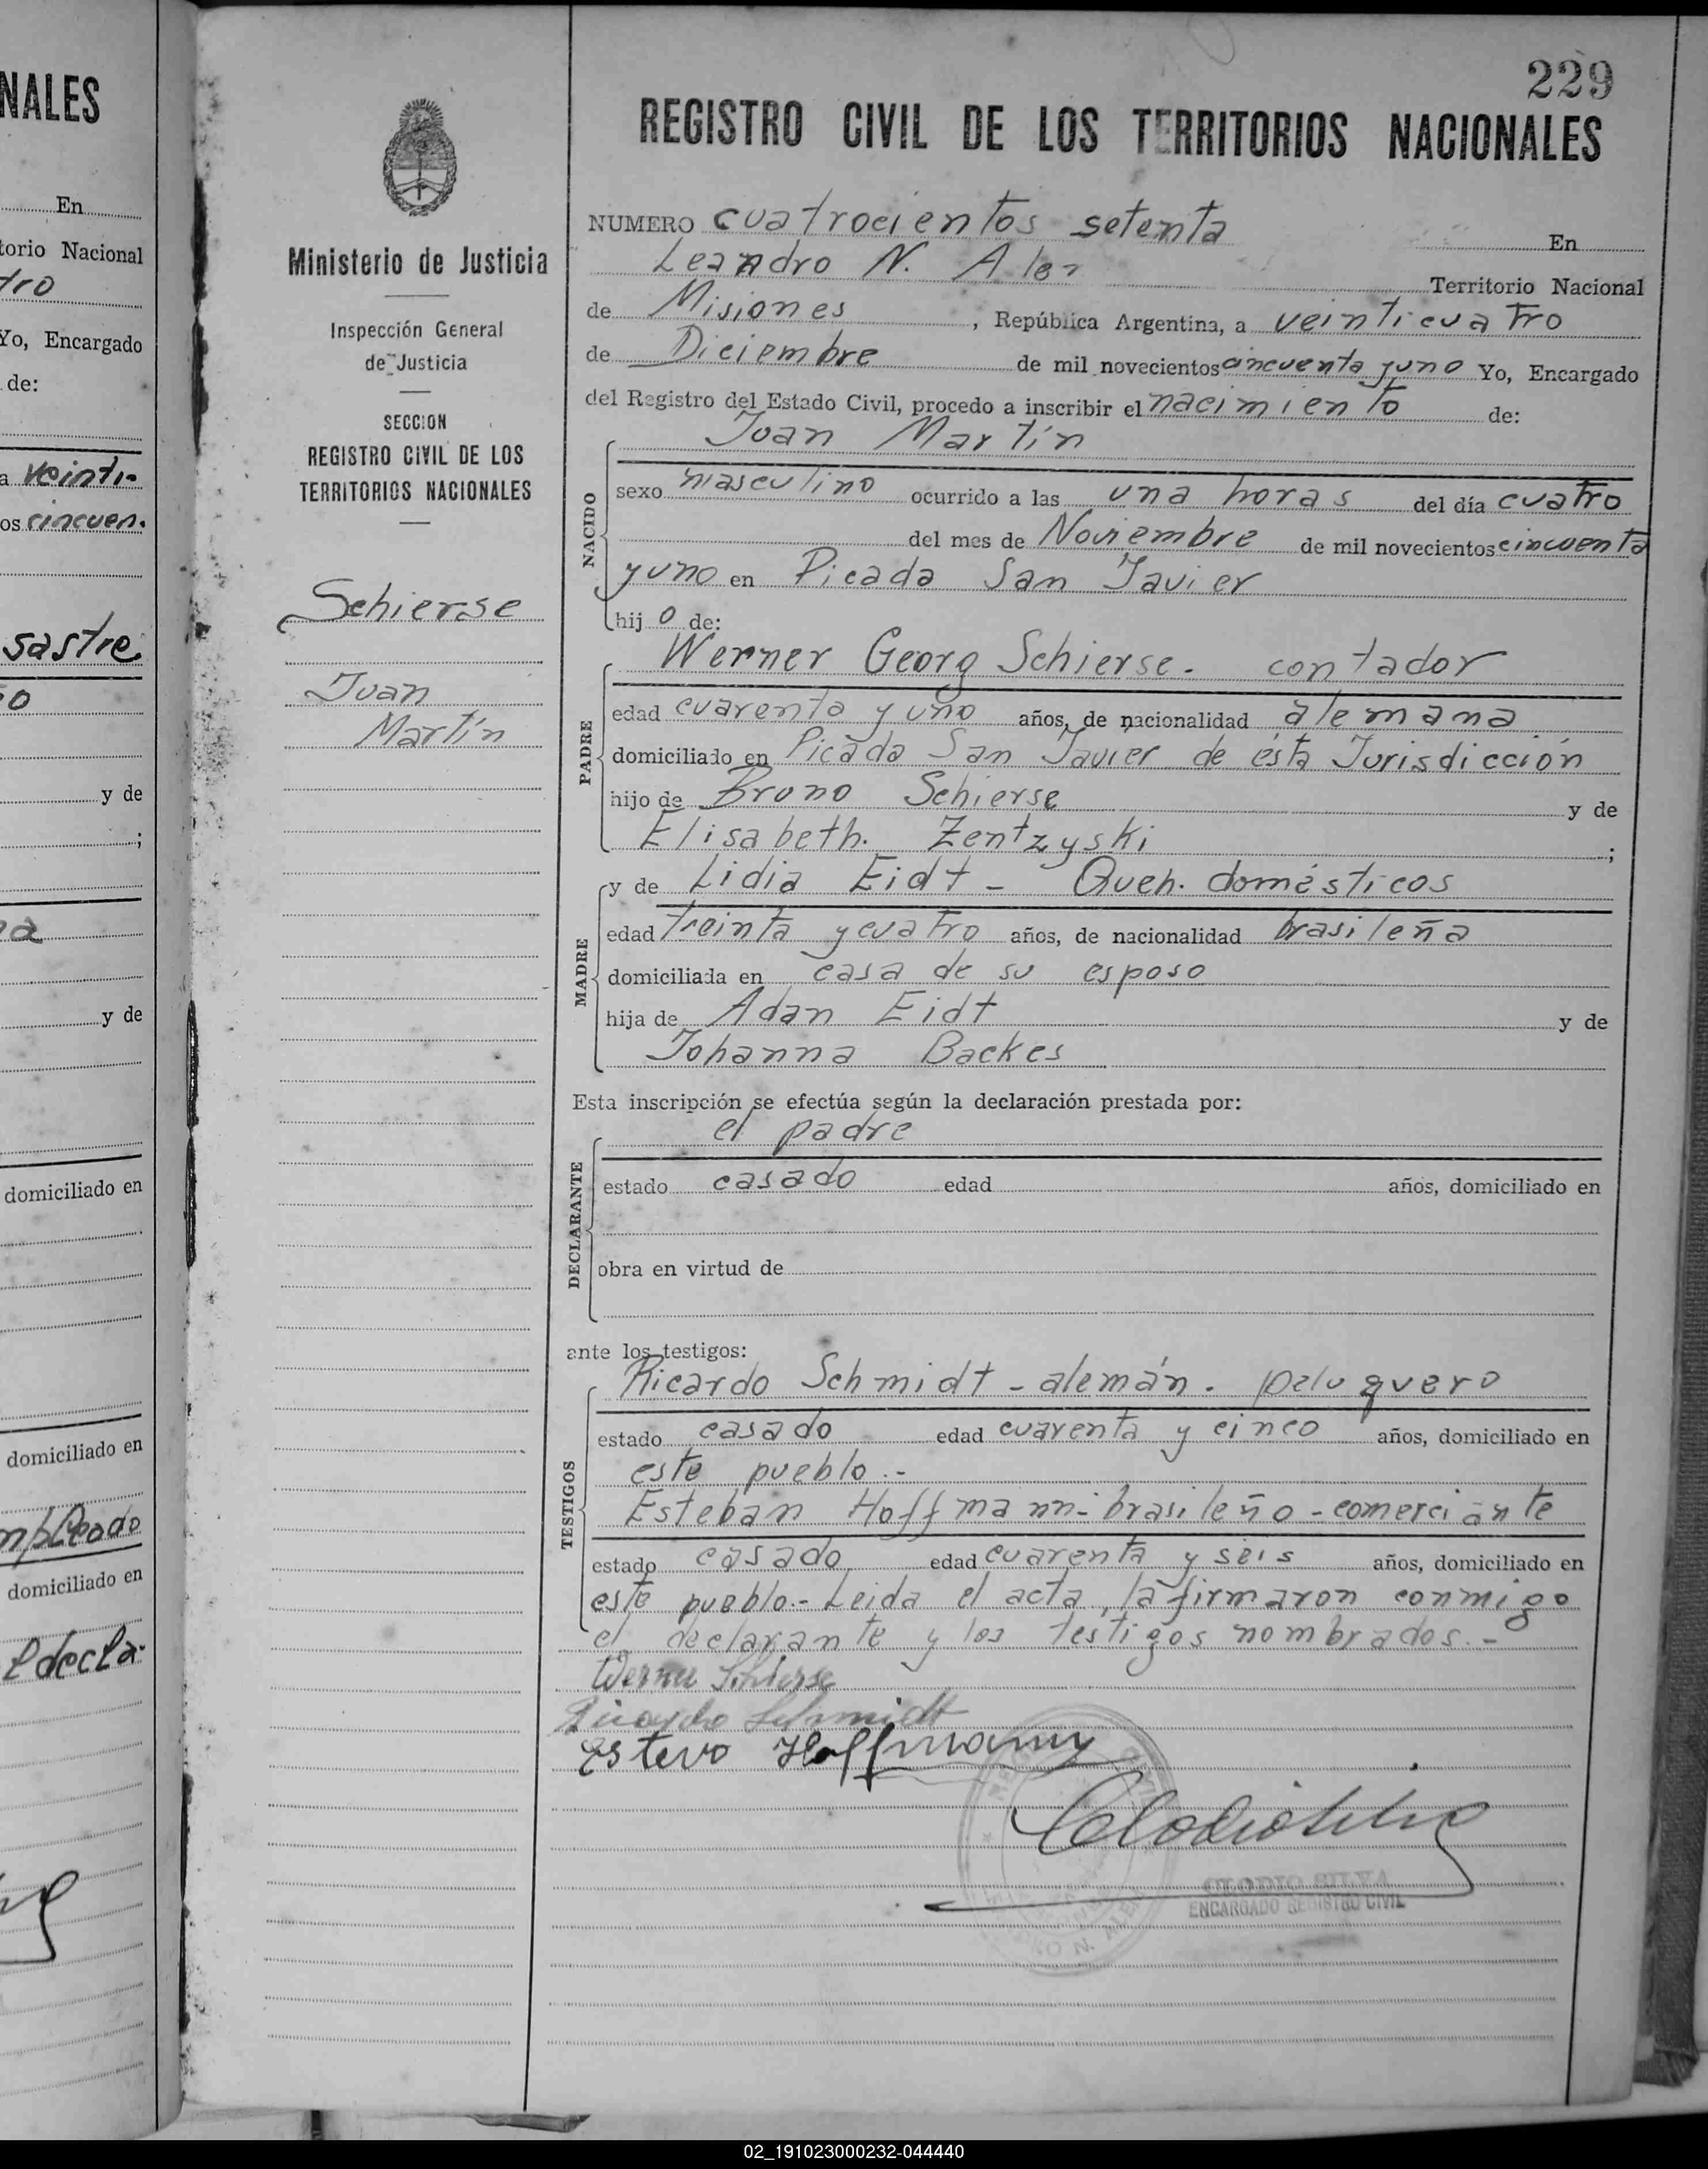 NALES
En
torio Nacional
tro
Yo, Encargado
de:
a veinti-
os cincuen.
sastre
y de
;
y de
domiciliado en
domiciliado en
mpleado
domiciliado en
l decla-
Ministerio de Justicia
Inspección General
de Justicia
SECCION
REGISTRO CIVIL DE LOS
TERRITORIOS NACIONALES
Schierse
Juan
Martín
229
REGISTRO CIVIL DE LOS TERRITORIOS NACIONALES
NUMERO cuatrocientos setenta En
Leandro N. Alem Territorio Nacional
de Misiones, República Argentina, a veinticuatro
de Diciembre de mil novecientos cincuenta y uno Yo, Encargado
del Registro del Estado Civil, procedo a inscribir el nacimiento de:
NACIDO
Juan Martín
sexo masculino ocurrido a las una horas del día cuatro
del mes de Noviembre de mil novecientos cincuenta
y uno en Picada San Javier
hijo de:
PADRE
Werner Georg Schierse. contador
edad cuarenta y uno años, de nacionalidad alemana
domiciliado en Picada San Javier de ésta Jurisdicción
hijo de Bruno Schierse y de
Elisabeth. Zentzyski ;
MADRE
y de Lidia Eidt - Queh. domésticos
edad treinta y cuatro años, de nacionalidad brasileña
domiciliada en casa de su esposo
hija de Adan Eidt y de
Johanna Backes
Esta inscripción se efectúa según la declaración prestada por:
DECLARANTE
el padre
estado casado edad años, domiciliado en
obra en virtud de
ante los testigos:
TESTIGOS
Ricardo Schmidt - alemán. peluquero
estado casado edad cuarenta y cinco años, domiciliado en
este pueblo.-
Esteban Hoffmann - brasileño - comerciante
estado casado edad cuarenta y seis años, domiciliado en
este pueblo.- Leida el acta, la firmaron conmigo
el declarante y los testigos nombrados.-
Werner Schierse
Ricardo Schmidt
Estevo Hoffmann
Clodio Silva
CLODIO SILVA
ENCARGADO REGISTRO CIVIL
02_191023000232-044440